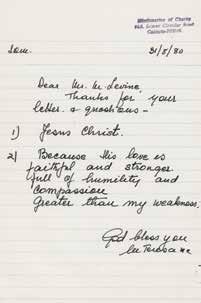 Missionaries of Charity
54A, Lower Circular Road
31/8/80
Dear Mr. M. Levine,
Thanks for your
letter & questions –
1) Jesus Christ.
2) Because His love is
faithful and stronger
full of humility and
compassion
Greater than my weakness.
God bless you
M Teresa mc